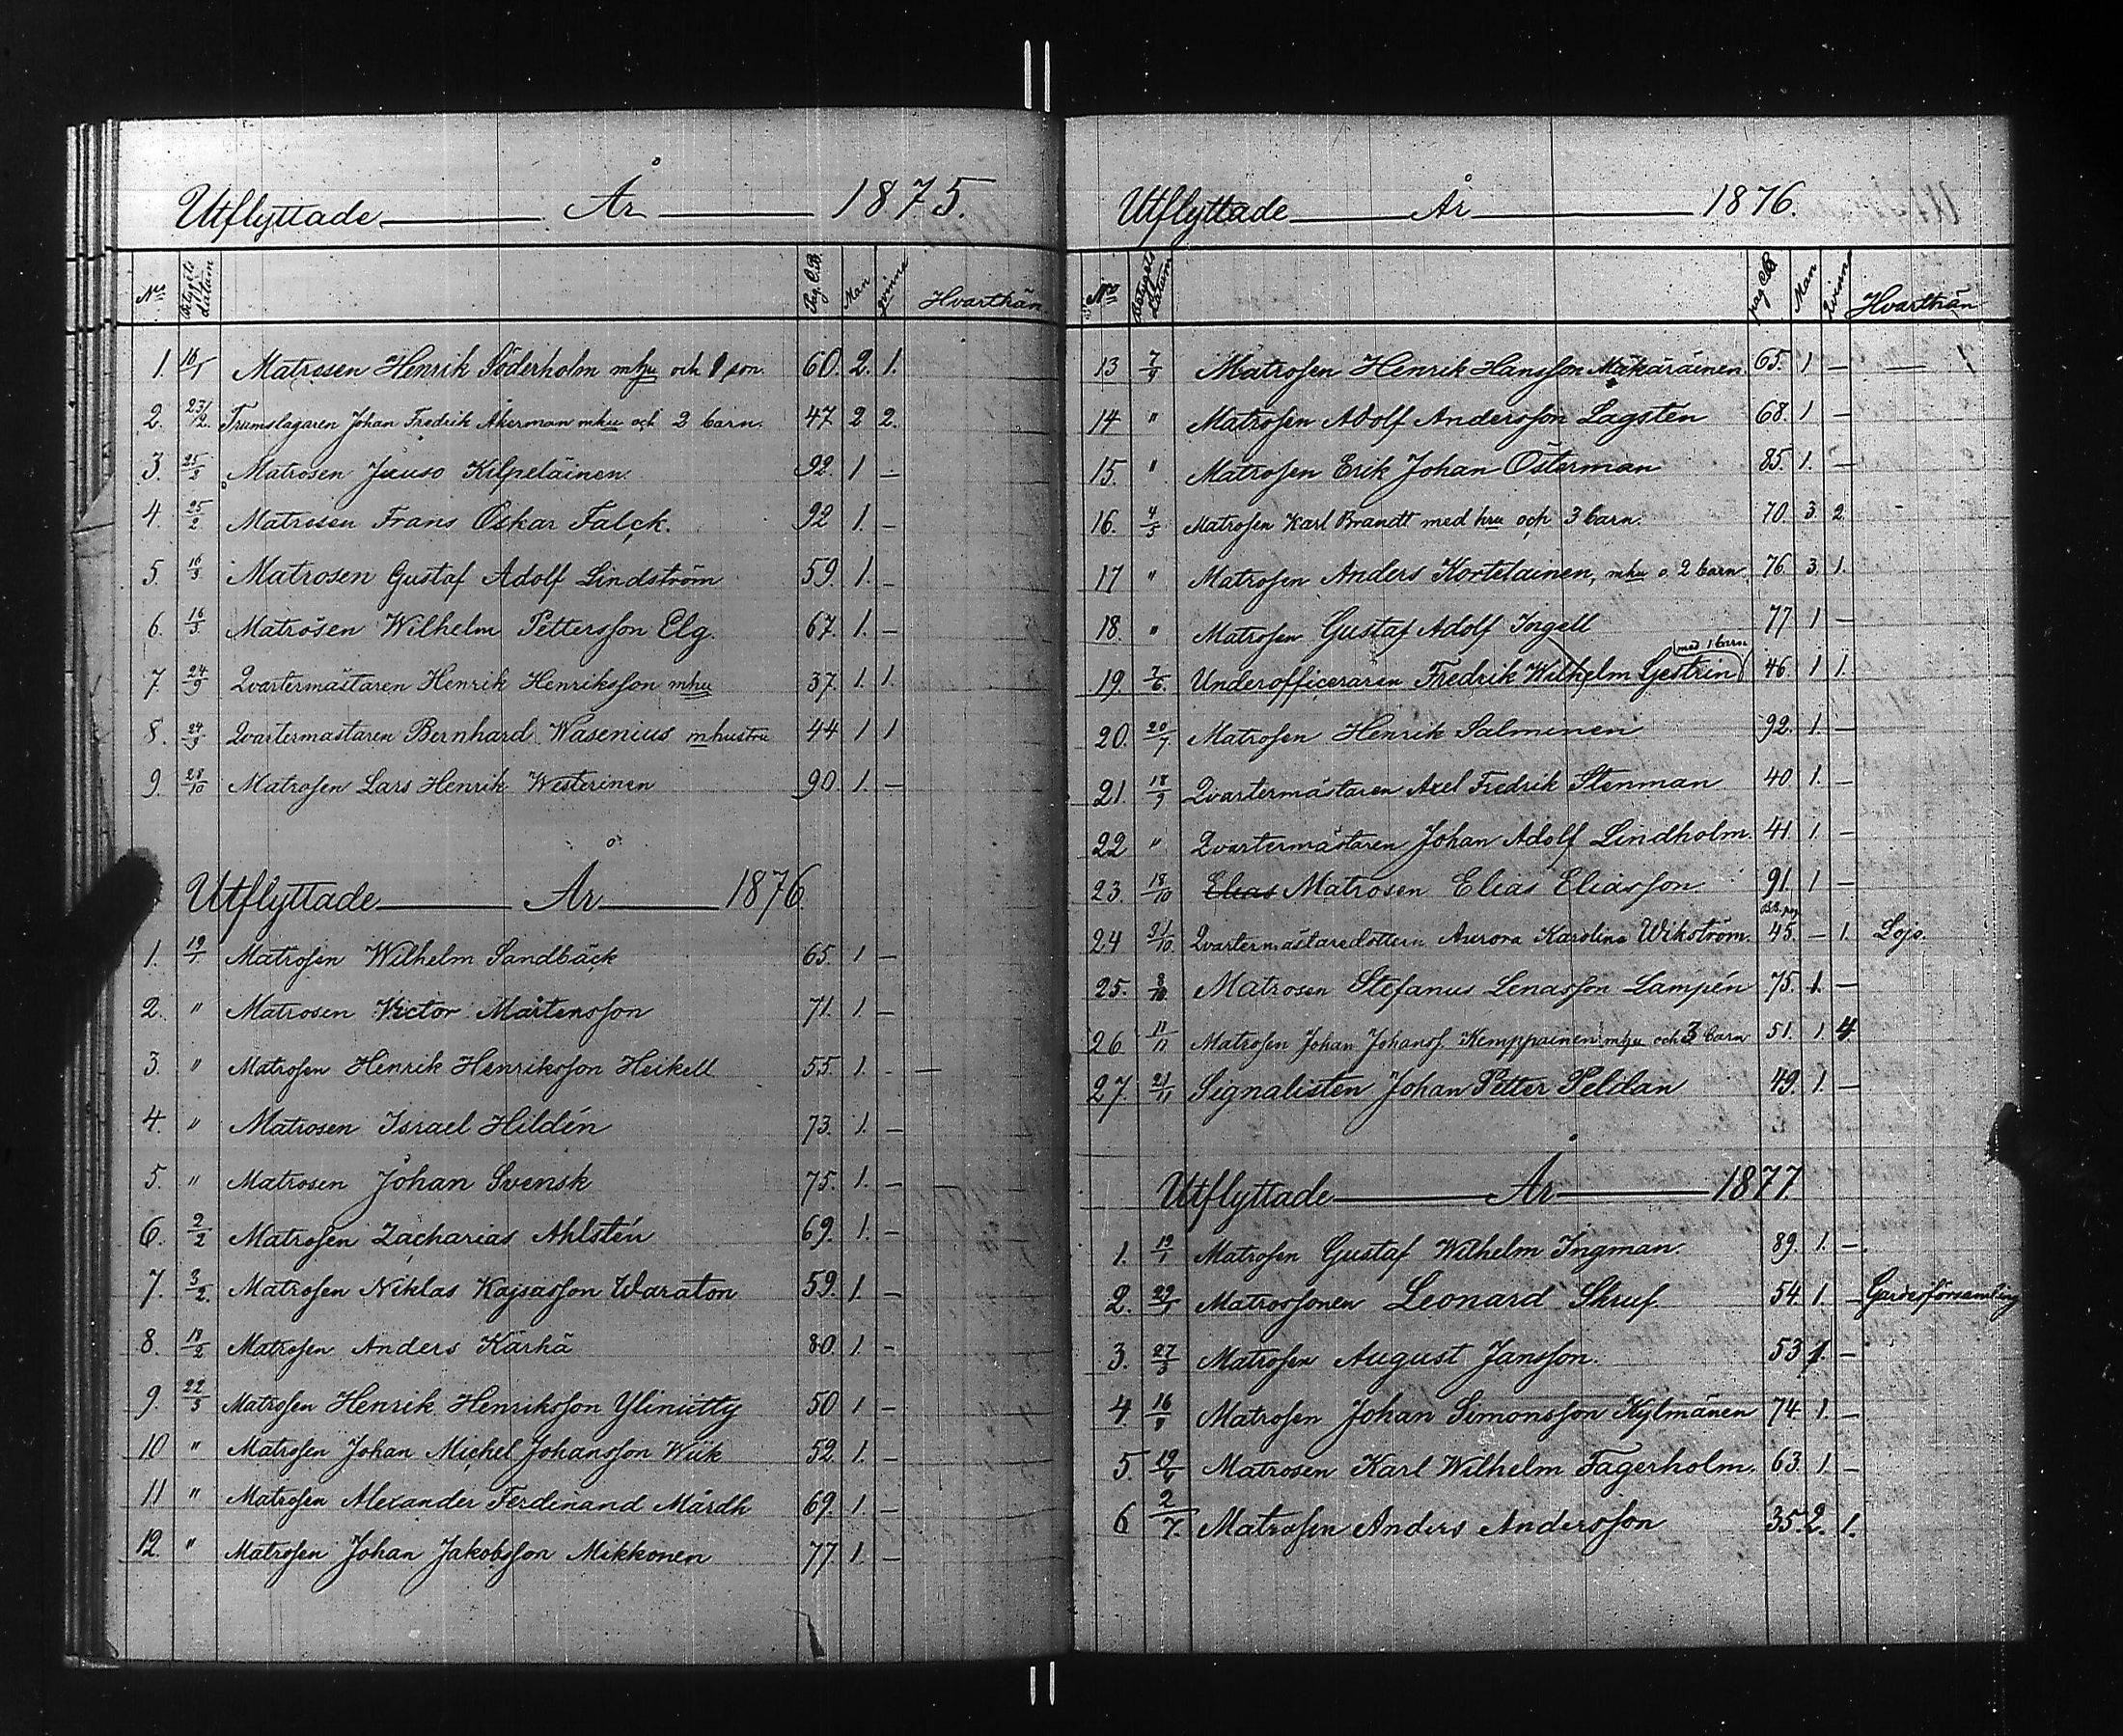 Utflyttade År 1875.
No Betygets datum Pag. C.B. Man qvinna Hvarthän
1. 16/1 Matrosen Henrik Söderholm mhu och 1 son. 60. 2. 1.
2. 23/2. Trumslagaren Johan Fredrik Åkerman mhu och 2 barn. 47 2 2.
3. 25/2 Matrosen Juuso Kilpeläinen. 92. 1 —
4. 25/2 Matrosen Frans Oskar Falck. 92 1. —
5. 16/3 Matrosen Gustaf Adolf Lindström 59. 1. —
6. 16/3 Matrosen Wilhelm Pettersson Elg. 67. 1. —
7. 24/9 Qvartermästaren Henrik Henriksson mhu 37. 1. 1.
8. 24/9 Qvartermästaren Bernhard Wasenius mhustru 44 1 1
9. 28/10 Matrosen Lars Henrik Westerinen 90. 1. —
Utflyttade År 1876.
1. 19/1 Matrosen Wilhelm Sandbäck 65. 1 —
2. " Matrosen Victor Mårtensson 71. 1. —
3. " Matrosen Henrik Henriksson Heikell 55. 1. — —
4. " Matrosen Israel Hildén 73. 1. —
5. " Matrosen Johan Svensk 75. 1. — —
6. 2/2 Matrosen Zacharias Ahlstén 69. 1. —
7. 3/2. Matrosen Niklas Kajsasson Waraton 59. 1. —
8. 18/2 Matrosen Anders Kärhä 80. 1. —
9. 22/3 Matrosen Henrik Henriksson Yliniitty 50 1 —
10 " Matrosen Johan Michel Johansson Wiik 52 1. —
11 " Matrosen Alexander Ferdinand Mårdh 69. 1. —
12. " Matrosen Johan Jakobsson Mikkonen 77 1. —
Utflyttade År 1876.
No Betygets datum pag C.B. Man Qvinna Hvarthän
13 7/9 Matrosen Henrik Hansson Mäkäräinen 65. 1 — —
14 " Matrosen Adolf Andersson Lagsten 68. 1 —
15. " Matrosen Erik Johan Österman 85. 1. —
16. 4/5 Matrosen Karl Brandt med hru och 3 barn. 70. 3. 2
17 " Matrosen Anders Kortelainen, mhu o. 2 barn. 76. 3. 1.
18. " Matrosen Gustaf Adolf Ingell 77 1 —
med 1 barn
19. 7/6. Underofficeraren Fredrik Wilhelm Gestrin 46. 1 1.
20. 20/7 Matrosen Henrik Salminen 92. 1. —
21. 18/9 Qvartermästaren Axel Fredrik Stenman 40 1. —
22 " Qvartermästaren Johan Adolf Lindholm. 41. 1. —
23. 18/10 Elias Matrosen Elias Eliasson. 91. 1 —
B.B. pag.
24 31/10 Qvartermästaredottern Aurora Karolina Wikström. 45. — 1. Lojo.
25. 8/10. Matrosen Stefanus Lenasson Lampén 75. 1. —
26 11/11 Matrosen Johan Johanss. Kemppainen mhu och 3 barn 51. 1. 4.
27. 21/11 Signalisten Johan Petter Peldan 49. 1. —
Utflyttade År 1877
1. 19/1 Matrosen Gustaf Wilhelm Ingman. 89. 1. —
2. Matrossonen Leonard Skruf 54. 1. — Gardesförsamling
3. 27/3 Matrosen August Jansson. 53 1. —
4 Matrosen Johan Simonsson Kylmänen 74 1. —
5 Matrosen Karl Wilhelm Fagerholm. 63. 1. —
6 2/7. Matrosen Anders Andersson 35. 2. 1.